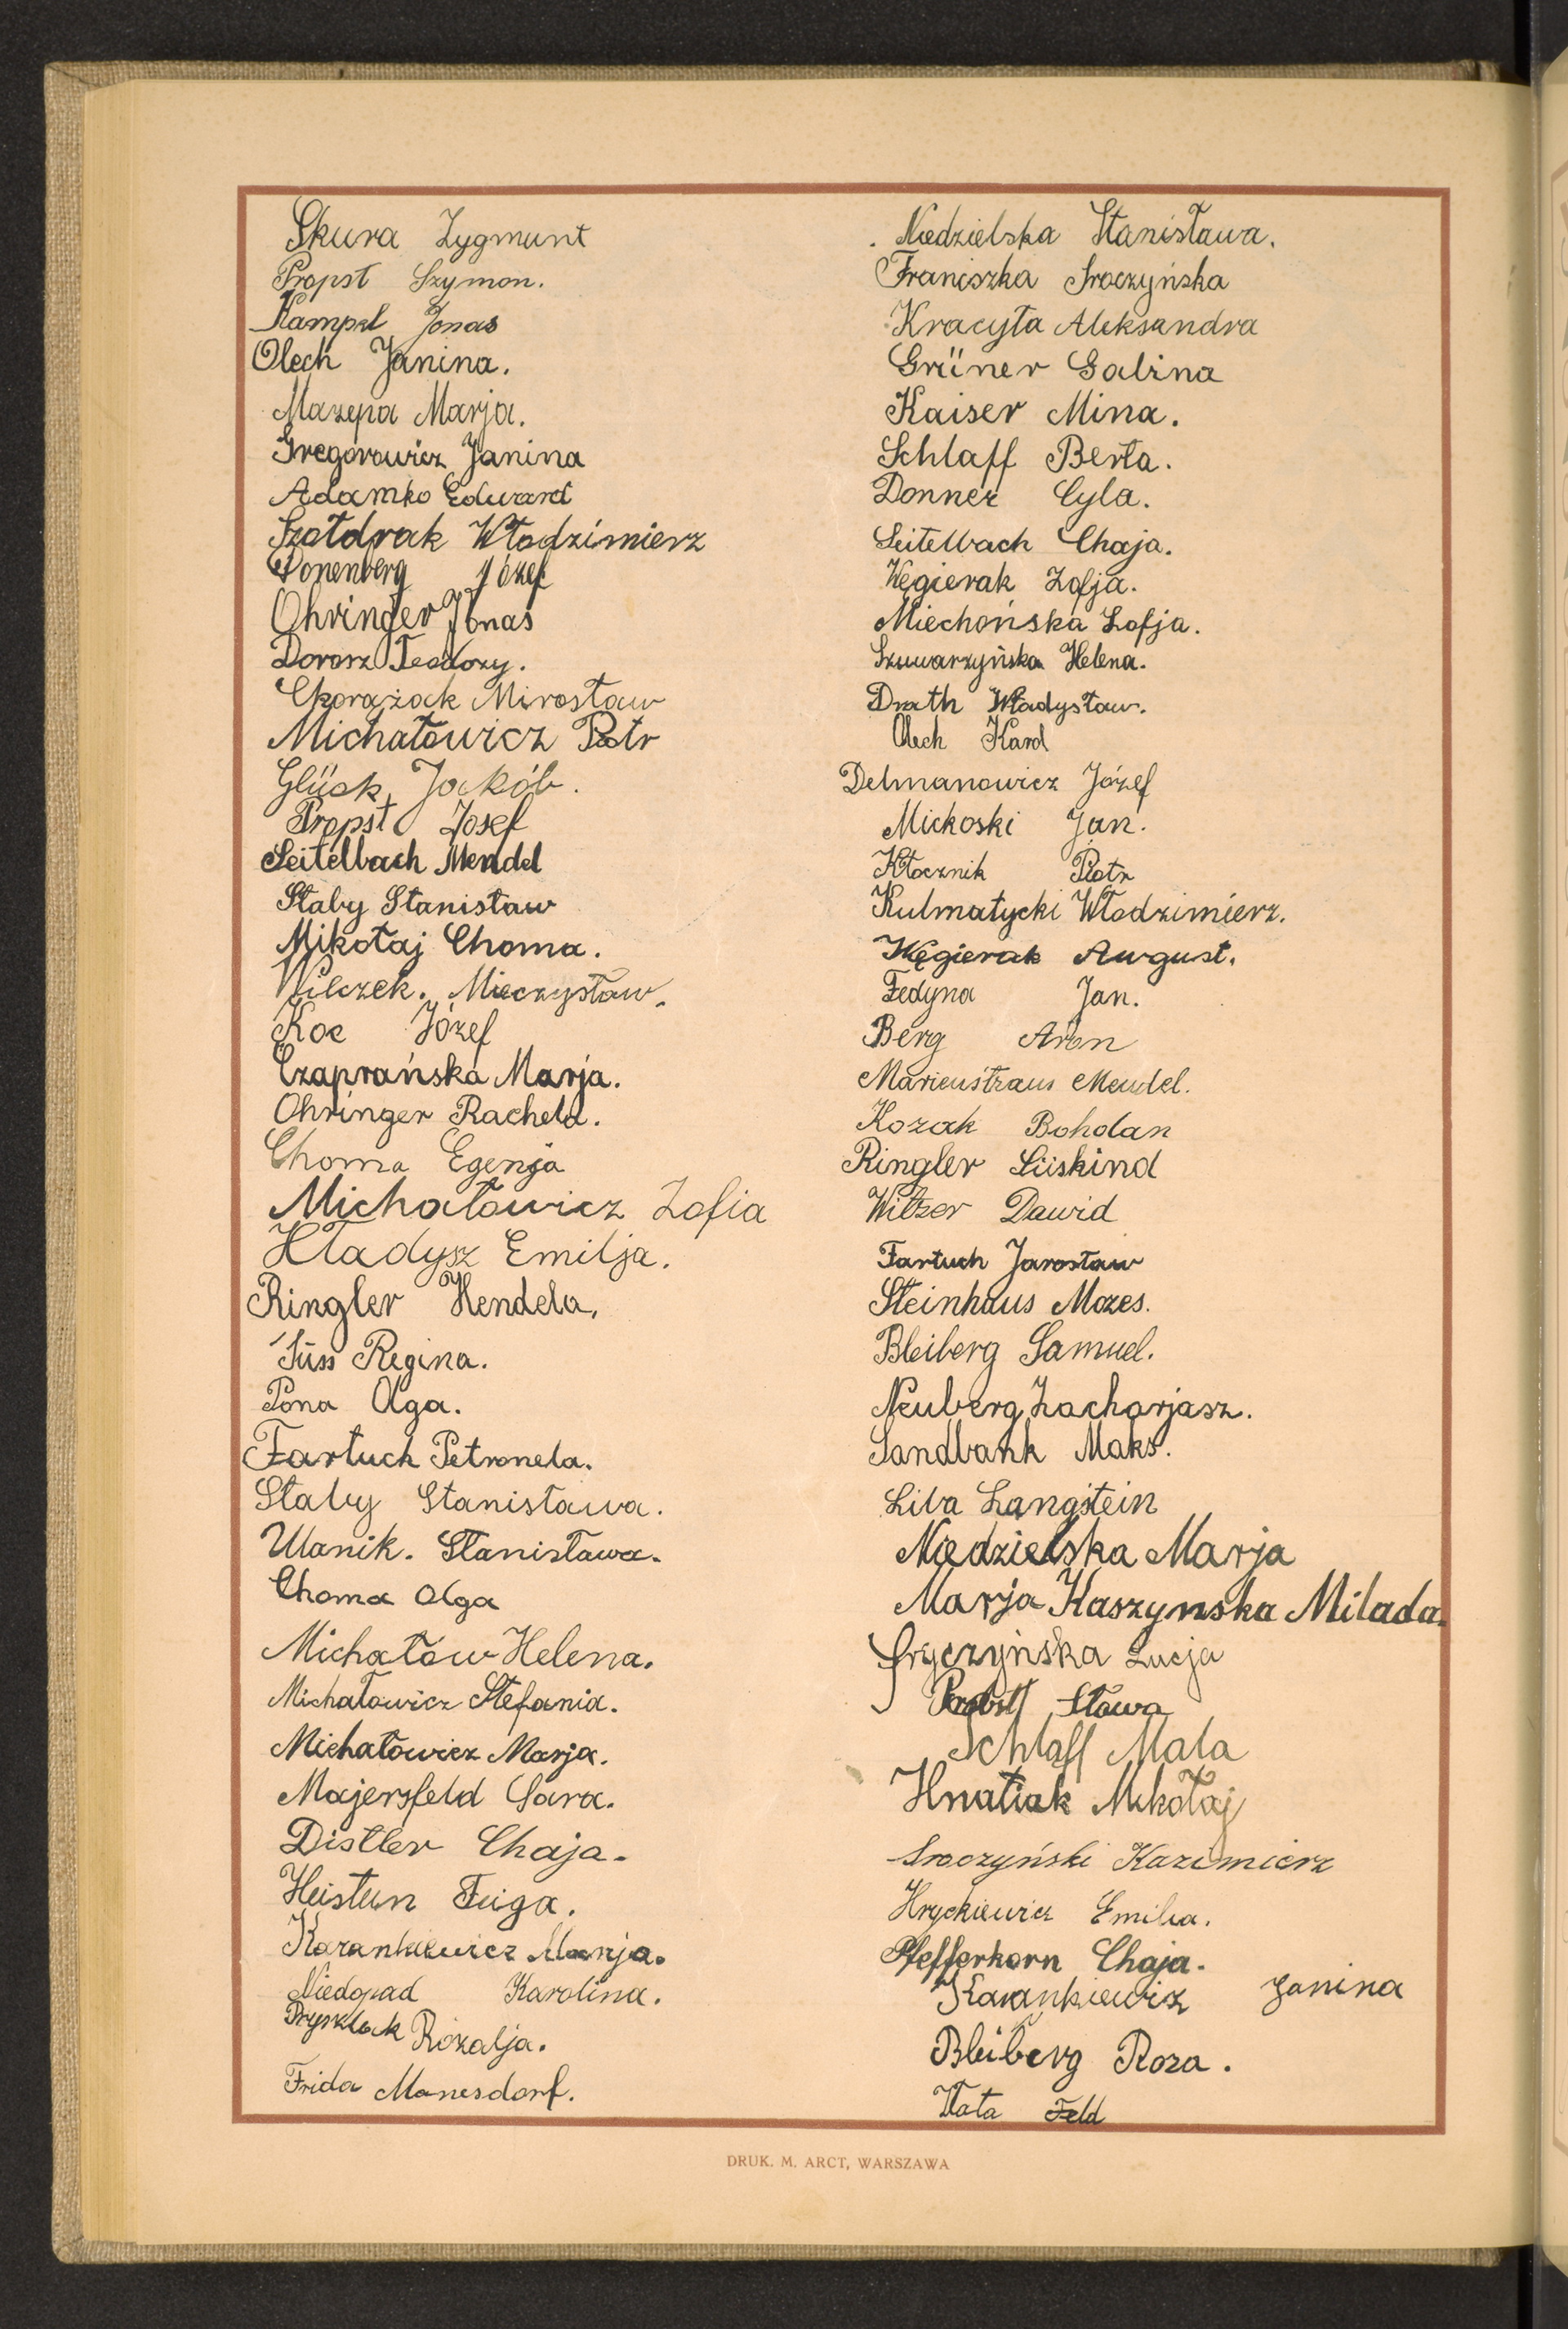 Skura Zygmunt
Propst Szymon.
Kampel Jonas
Olech Janina.
Mazepa Marja.
Gregorowicz Janina
Adamko Edward
Szołdrak Włodzimierz
Donenberg Józef
Ohringer Jonas
Dorosz Teodozy.
Chorążak Mirosław
Michałowicz Piotr
Glück Jakób.
Propst Josef
Seitelbach Mendel
Słaby Stanisław
Mikołaj Choma.
Wilczek. Mieczysław.
Koc Józef
Czaprańska Marja.
Ohringer Rachela.
Choma Egenja
Michałowicz Zofia
Hładysz Emilja.
Ringler Hendela.
Süss Regina.
Pona Olga.
Fartuch Petronela.
Słaby Stanisława.
Ulanik. Stanisława.
Choma Olga
Michałow Helena.
Michałowicz Stefania.
Michałowicz Marja.
Majersfeld Sara.
Distler Chaja.
Heistun Feiga.
Karankiewicz Marja.
Niedopad Karolina.
Przyszlak Rozalja.
Frida Manesdorf.
Niedzielska Stanisława.
Franciszka Sroczyńska
Kracyła Aleksandra
Grüner Galina
Kaiser Mina.
Schlaff Berta.
Donner Cyla.
Seitelbach Chaja.
Węgierak Zofja.
Miechońska Zofja.
Szuwarzyńska Helena.
Drath Władysław.
Olech Karol
Delmanowicz Józef
Mickoski Jan.
Kłocznik Piotr
Kulmatycki Włodzimierz.
Węgierak August.
Fedyna Jan.
Berg Aron
Marienstraus Mendel.
Kozak Bohdan
Ringler Süskind
Witzer Dawid
Fartuch Jarosław
Steinhaus Mozes.
Bleiberg Samuel.
Neuberg Zacharjasz.
Sandbank Maks.
Liba Langstein
Niedzielska Marja
Marja Kaszynska Milada.
Gryczyńska Łucja
Probst Sława
Schlaff Mala
Hnatiak Mikołaj
Sroczyński Kazimierz
Hryckiewicz Emilia.
Pfefferkorn Chaja.
Karankiewicz Janina
Bleiberg Roza.
Feld
DRUK. M. ARCT, WARSZAWA